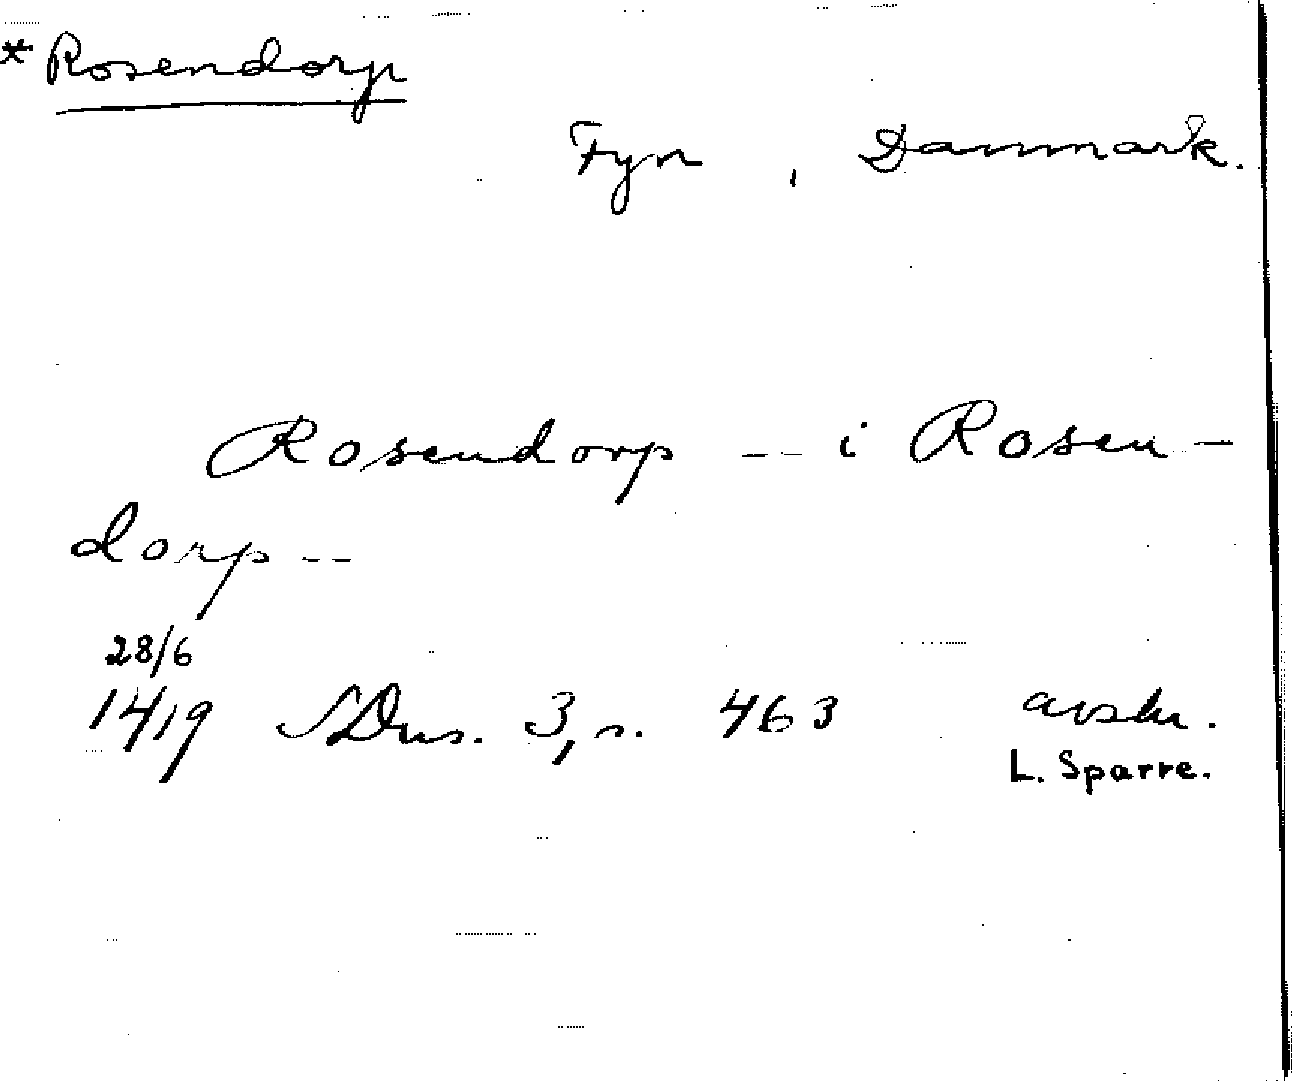 * Rosendorp
Fyn , Danmark.
Rosendorp -- i Rosen-
dorp --
28/6
1419 SDns. 3, s. 463 avskr.
L. Sparre.